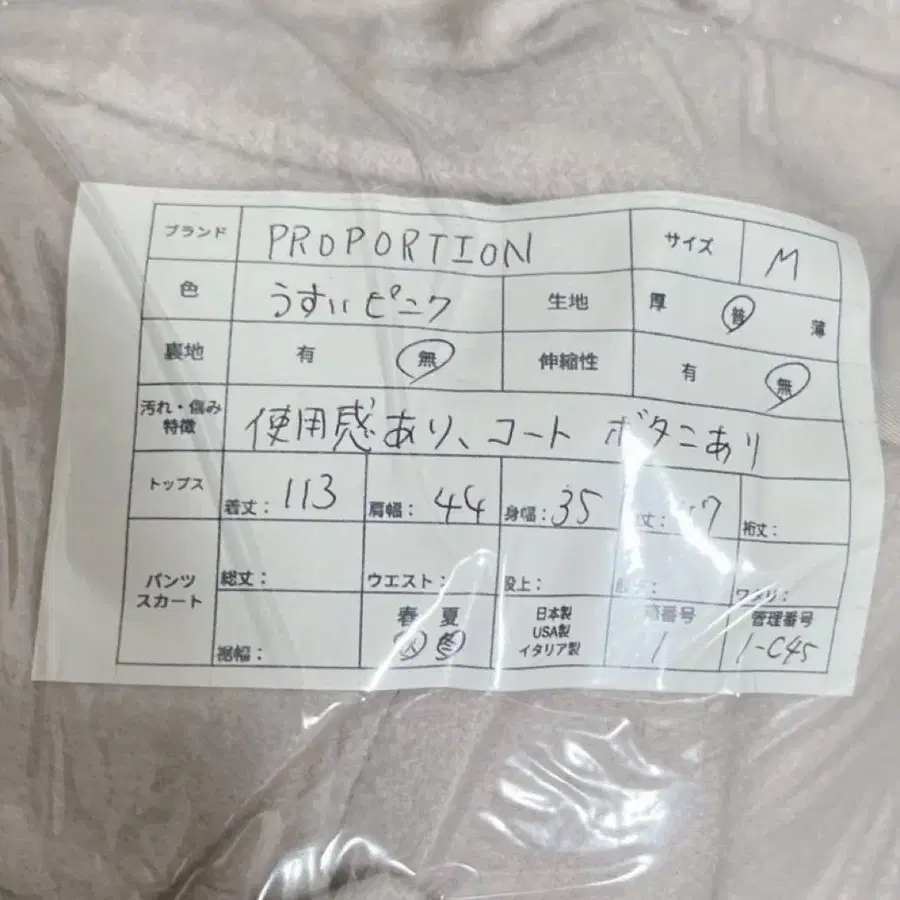 ブランド PROPORTION サイズ M
色 うすいピンク 生地 厚 普 薄
裏地 有 無 伸縮性 有 無
汚れ・傷み 特徴 使用感あり、コート ボタンあり
トップス 着丈: 113 肩幅: 44 身幅: 35 丈: 7 裄丈:
パンツ スカート 総丈: ウエスト: 股上: ワタリ:
裾幅: 春 夏 秋 冬 日本製 USA製 イタリア製 番号 1 管理番号 1-C45